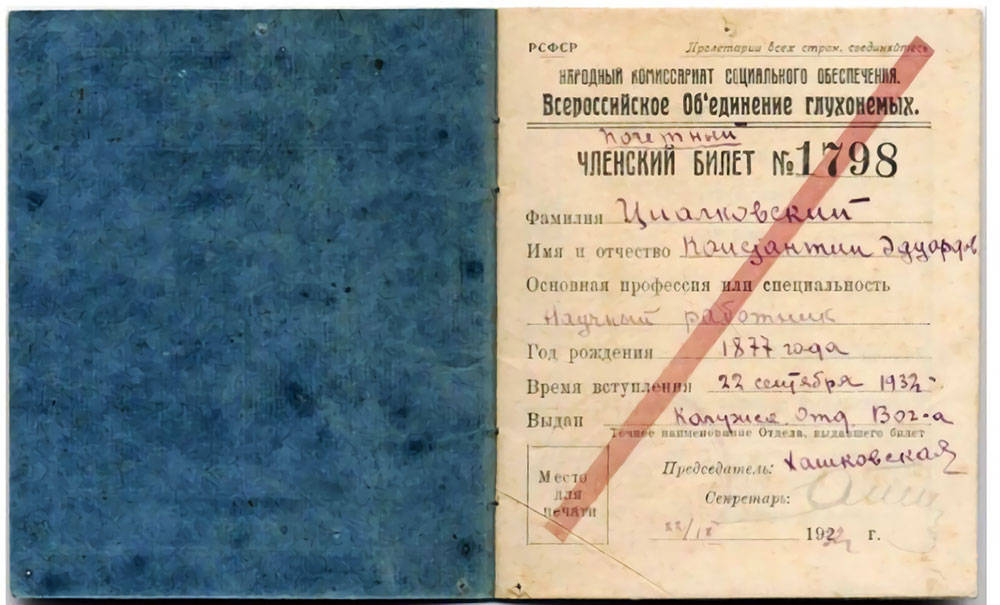 РСФСР Пролетарии всех стран, соединяйтесь
НАРОДНЫЙ КОМИССАРИАТ СОЦИАЛЬНОГО ОБЕСПЕЧЕНИЯ.
Всероссийское Об'единение глухонемых.
Почетный
ЧЛЕНСКИЙ БИЛЕТ № 1798
Фамилия Циалковский
Имя и отчество Константин Эдуардов
Основная профессия или специальность
Научный работник
Год рождения 1877 года
Время вступления 22 сентября 1932
Выдан Калужск Отд Вог-а
Точное наименование Отдела, выдавшего билет
Место для печати
Председатель: Хашковская
Секретарь:
22/IX 1932 г.